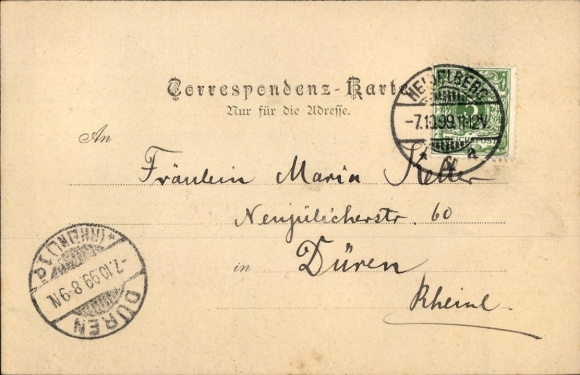 Correspondenz-Karte
Nur für die Adresse.
HEIDELBERG
-7.10.99.11-12V.
An
Fräulein Maria Keller
Neujülicherstr. 60
in Düren
Rheinl.
(RHEINL.)
-7.10.99 8-9N.
DÜREN